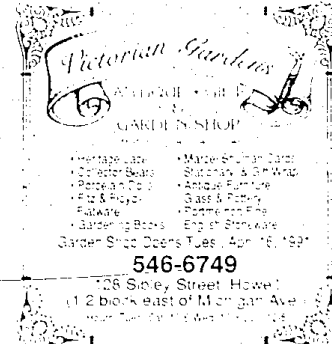 Victorian Gardens
ANTIQUE • GIFT
&
GARDEN SHOP
• Heritage Lace
• Collector Bears
• Porcelain Dolls
• Fitz & Floyd
Flatware
• Gardening Books
• Marcel Shurman Cards
Stationary & Gift Wrap
• Antique Furniture
Glass & Pottery
• Portmeirion Fine
English Stoneware
Garden Shop Opens Tues., April 16, 1991
546-6749
128 Sibley Street, Howell
(1/2 block east of Michigan Ave.)